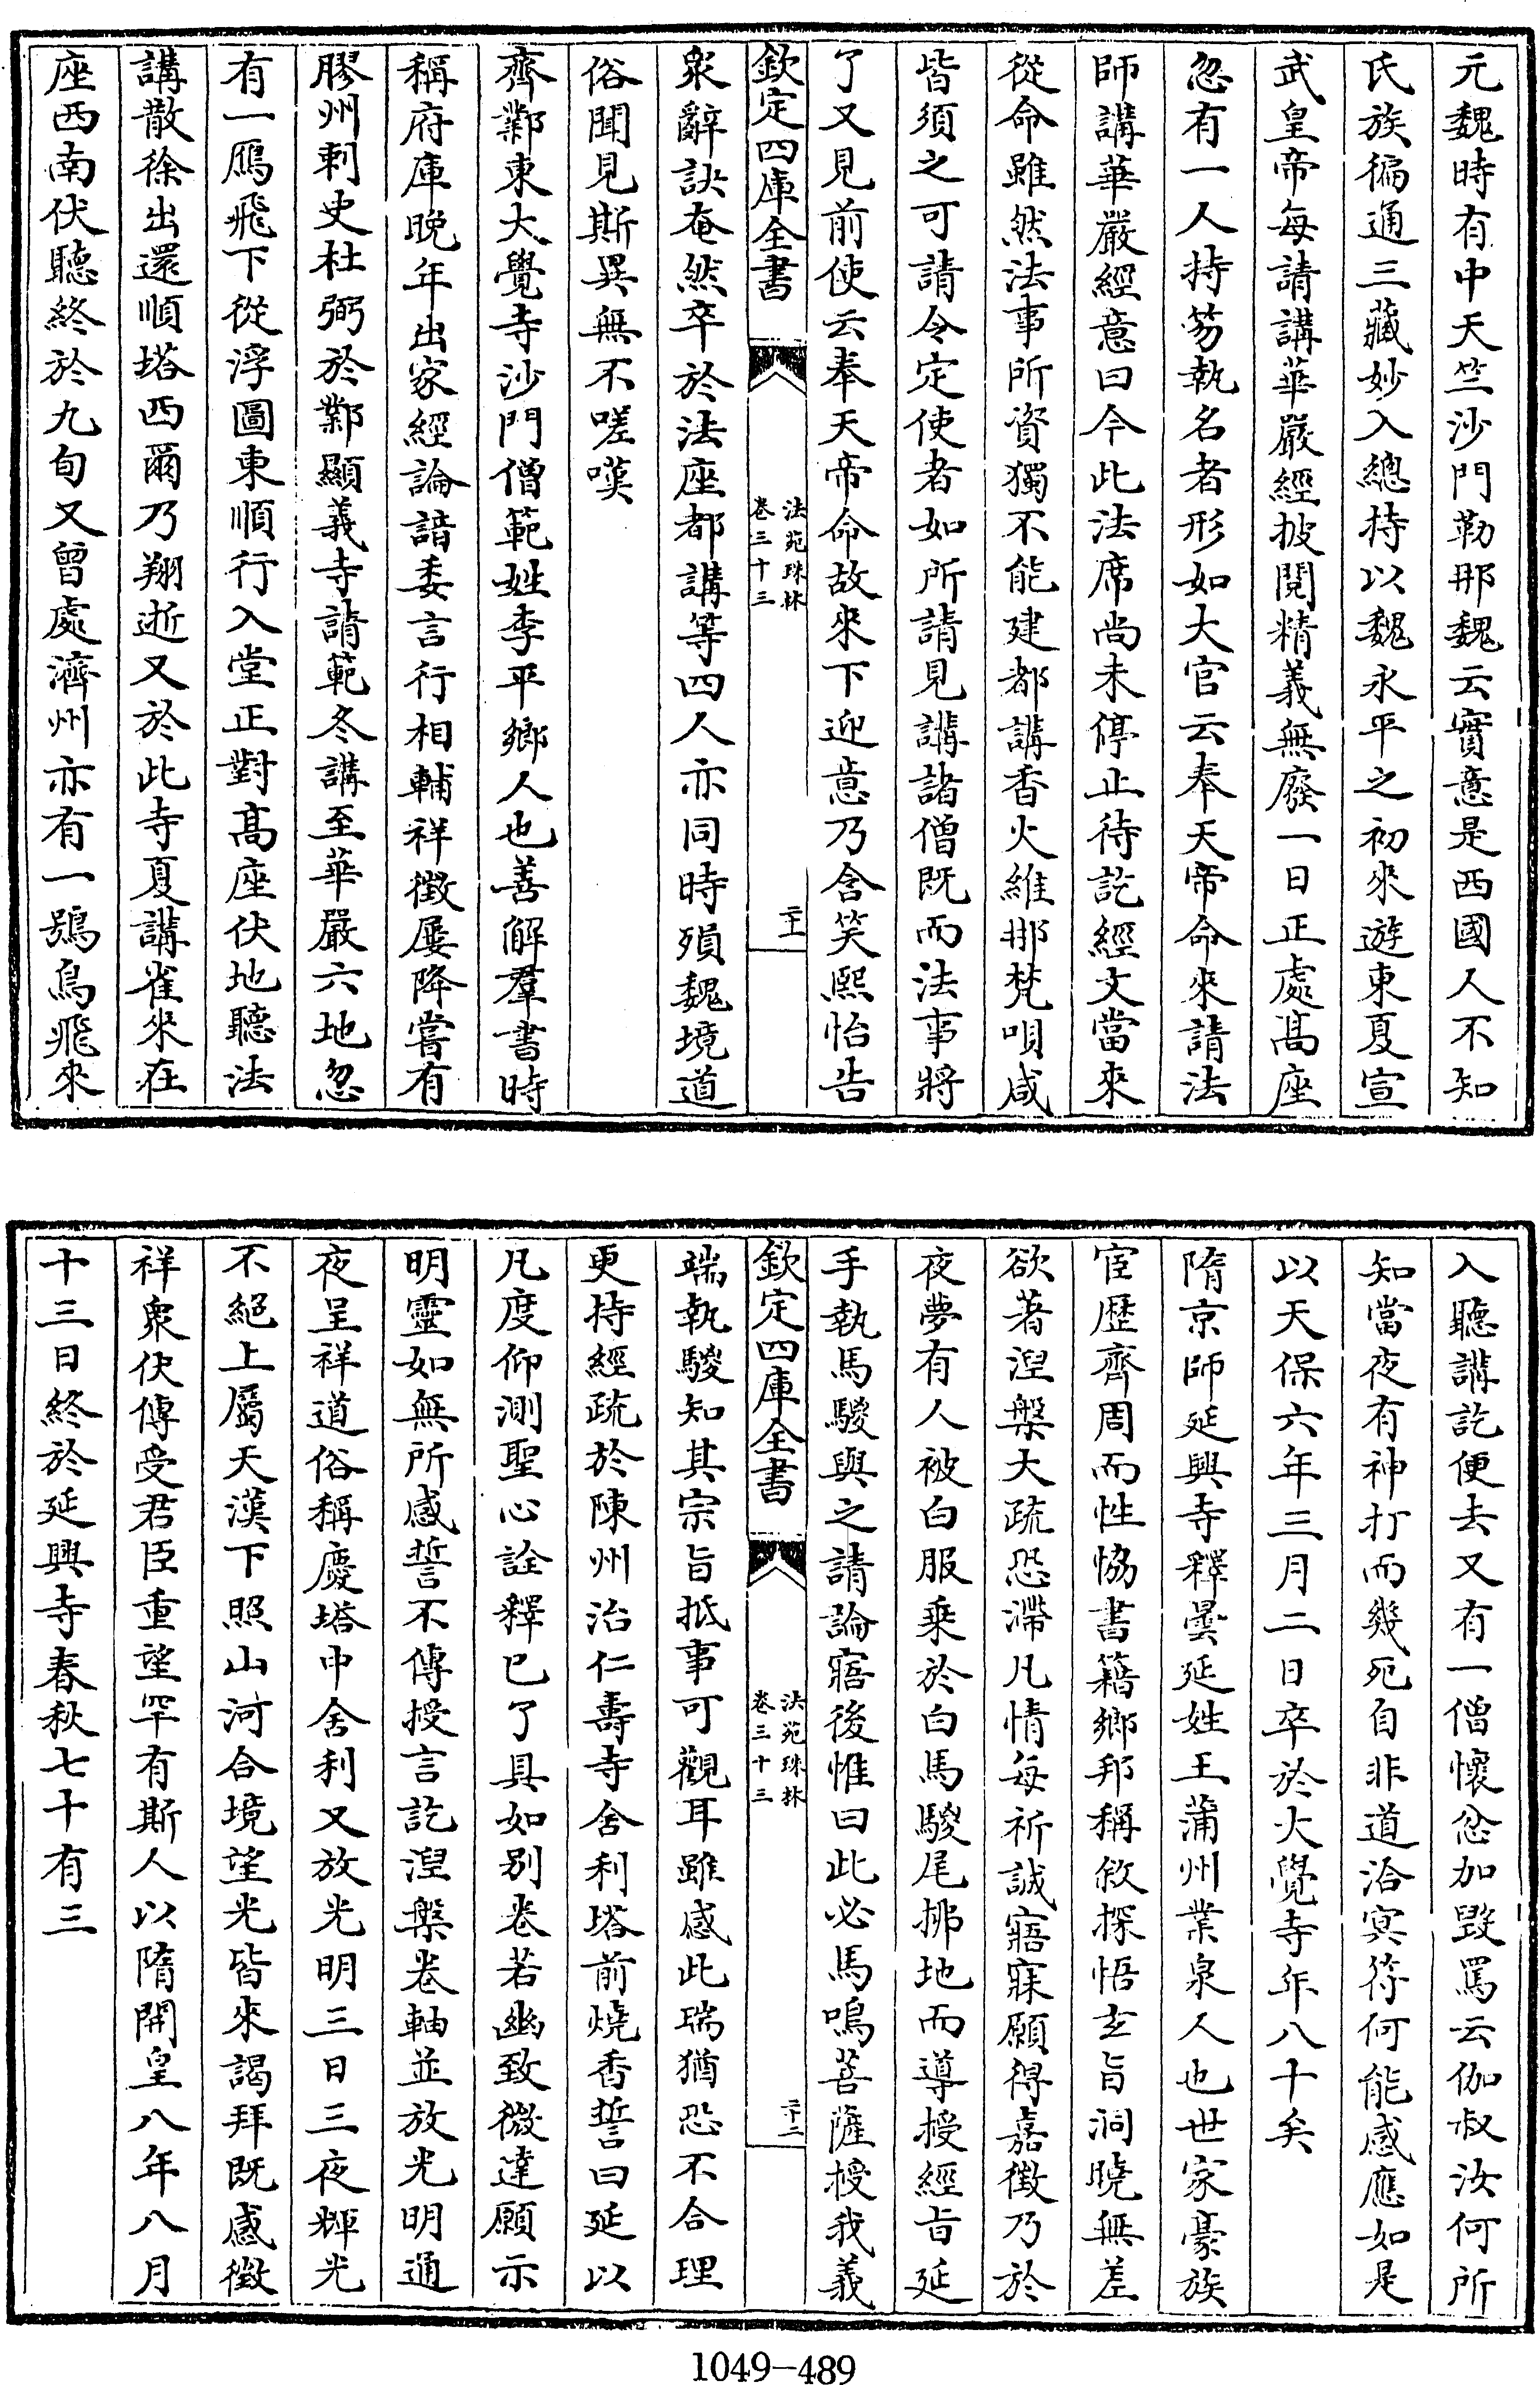 元魏時有中天竺沙門勒那魏云寳意是西國人不知
氏族徧通三藏妙入總持以魏永平之初來遊東夏宣
武皇帝每請講華嚴經披閱精義無廢一日正處髙座
忽有一人持笏執名者形如大官云奉天帝命來請法
師講華嚴經意曰今此法席尚未停止待訖經文當來
從命雖然法事所資獨不能建都講香火維那梵唄咸
皆須之可請令定使者如所請見講諸僧既而法事將
了又見前使云奉天帝命故來下迎意乃含笑熙怡告
欽定四庫全書
法苑珠林
卷三十三
二十一
衆辭訣奄然卒於法座都講等四人亦同時殞魏境道
俗聞見斯異無不嗟嘆
齊鄴東大覺寺沙門僧範姓李平鄉人也善解羣書時
稱府庫晚年出家經論諳委言行相輔祥徵屢降嘗有
膠州刺史杜弼於鄴顯義寺請範冬講至華嚴六地忽
有一鴈飛下從浮圖東順行入堂正對髙座伏地聽法
講散徐出還順塔西爾乃翔逝又於此寺夏講雀來在
座西南伏聽終於九旬又曽處濟州亦有一鴞鳥飛來
入聽講訖便去又有一僧懷忿加毀罵云伽叔汝何所
知當夜有神打而幾死自非道洽冥符何能感應如是
以天保六年三月二日卒於大覺寺年八十矣
隋京師延興寺釋曇延姓王蒲州業泉人也世家豪族
宦歷齊周而性恊書籍鄉邦稱敘探悟玄旨洞曉無差
欲著涅槃大疏恐滯凡情每祈誠寤寐願得嘉徵乃於
夜夢有人被白服乘於白馬騣尾拂地而導授經旨延
手執馬騣與之請論寤後惟曰此必馬鳴菩薩授我義
欽定四庫全書
法苑珠林
卷三十三
二十二
端執騣知其宗旨抵事可觀耳雖感此瑞猶恐不合理
更持經疏於陳州治仁壽寺舍利塔前燒香誓曰延以
凡度仰測聖心詮釋已了具如别卷若幽致微達願示
明靈如無所感誓不傳授言訖涅槃卷軸並放光明通
夜呈祥道俗稱慶塔中舍利又放光明三日三夜輝光
不絕上屬天漢下照山河合境望光皆來謁拜既感徵
祥衆伏傳受君臣重望罕有斯人以隋開皇八年八月
十三日終於延興寺春秋七十有三
1049-489